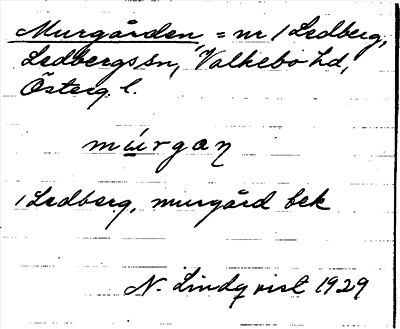 Murgården, = nr 1 Ledberg,
Ledbergs sn, Valkebo hd,
Österg. l.
múrgaɳ
1 Ledberg, murgård bek
N. Lindqvist 1929